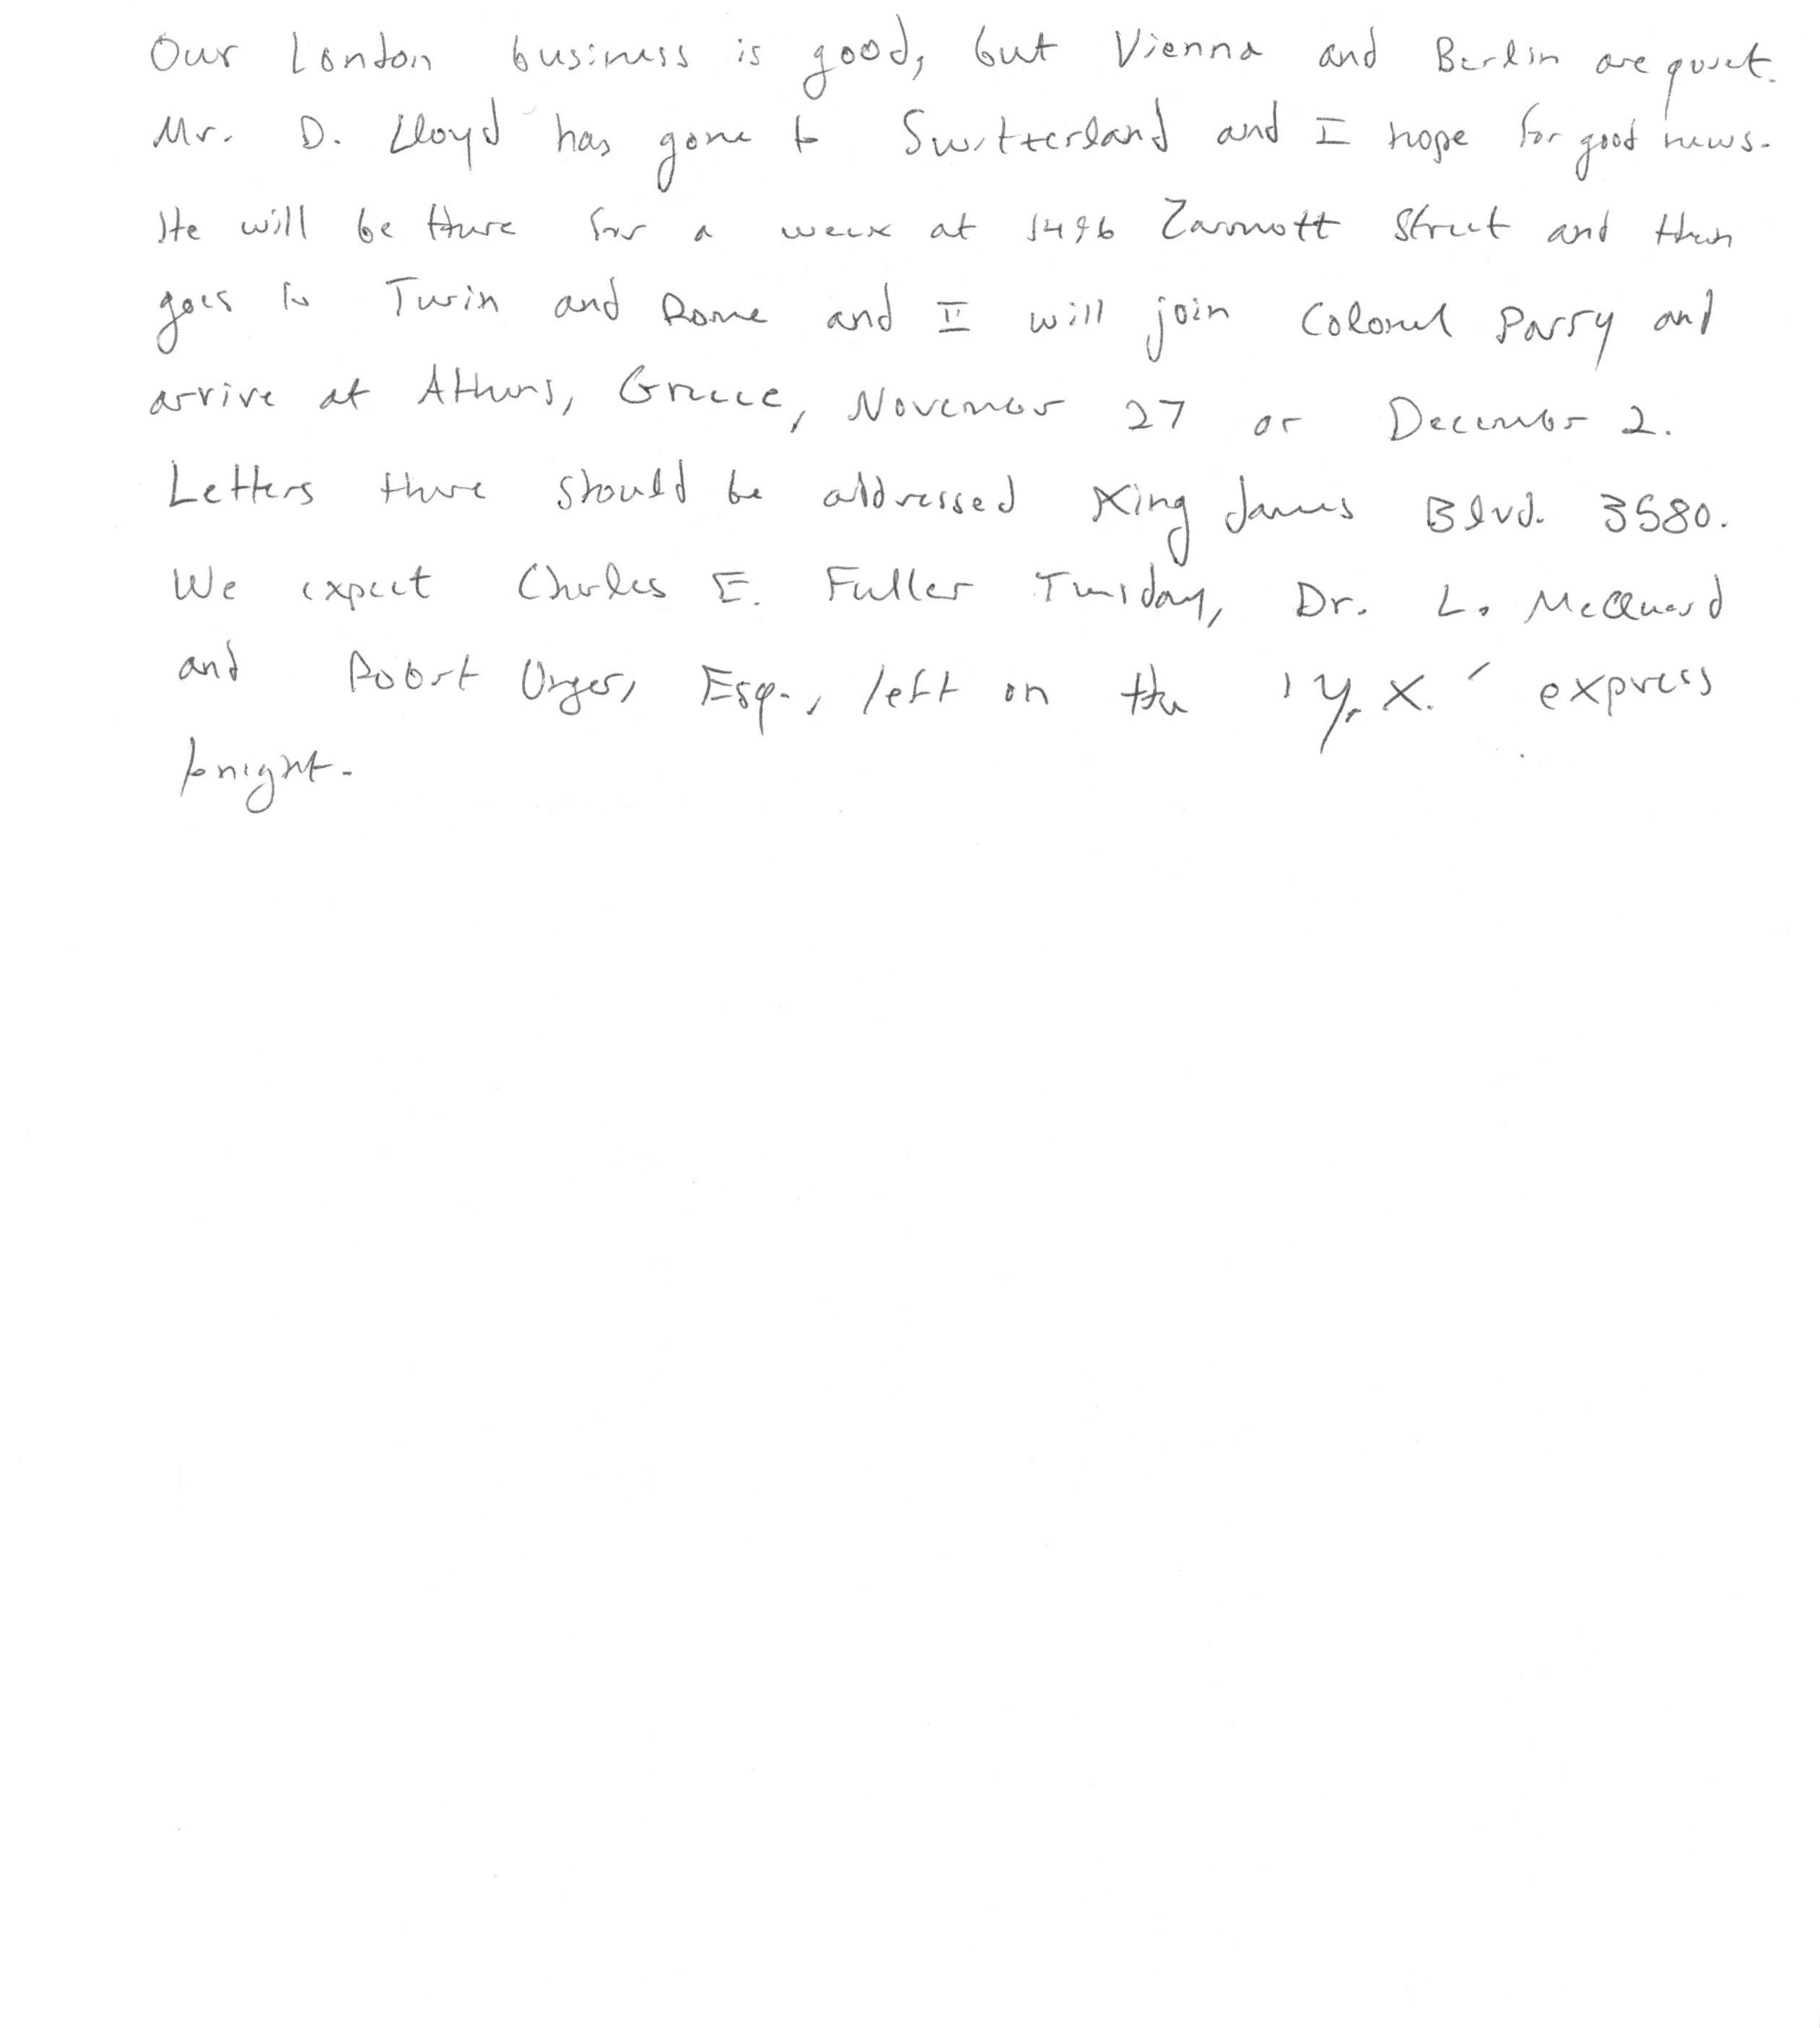 Our London business is good, but Vienna and Berlin are quiet.
Mr. D. Lloyd has gone to Switzerland and I hope for good news.
He will be there for a week at 1496 Zarmott Street and then
goes to Turin and Rome and II will join Colonel Parry and
arrive at Athens, Greece, November 27 or December 2.
Letters there should be addressed King James Blvd. 3580.
We expect Charles E. Fuller Tuesday, Dr. L. McQuaid
and Robert Unger, Esq., left on the 'Y. X.' express
tonight.